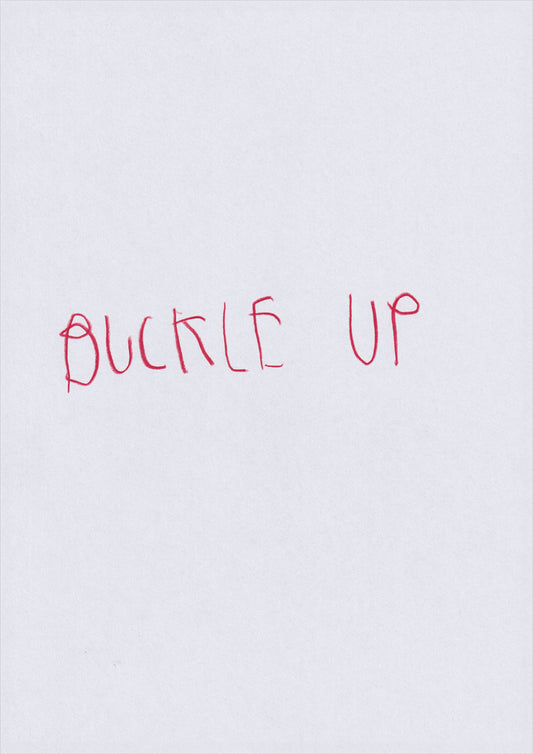 BUCKLE UP